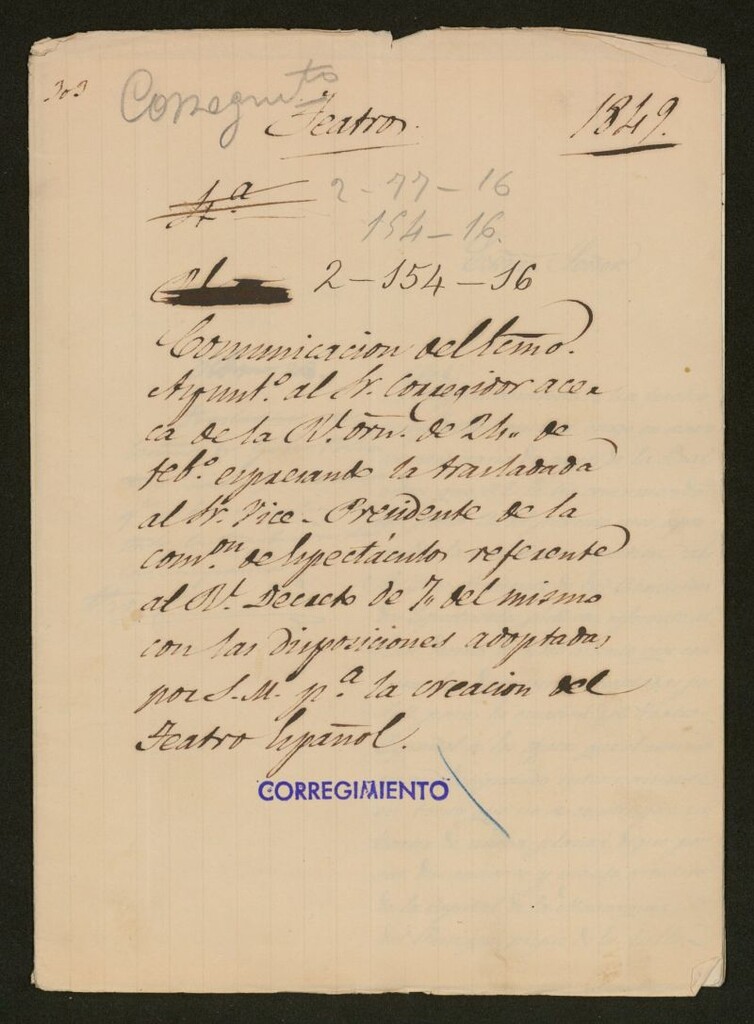 303
Corregimto
Teatros.
1849.
4ª
2-77-16
154-16.
2-154-16
Comunicacion del Excmo.
Ayuntº. al Sr. Corregidor acer-
ca de la Rl. orn. de 24,, de
febº. espresando la trasladada
al Sr. Vice-Presidente de la
comon. de Espectáculos referente
al Rl. Decreto de 7,, del mismo
con las disposiciones adoptadas
por S.M. pª la creacion del
Teatro Español.
CORREGIMIENTO